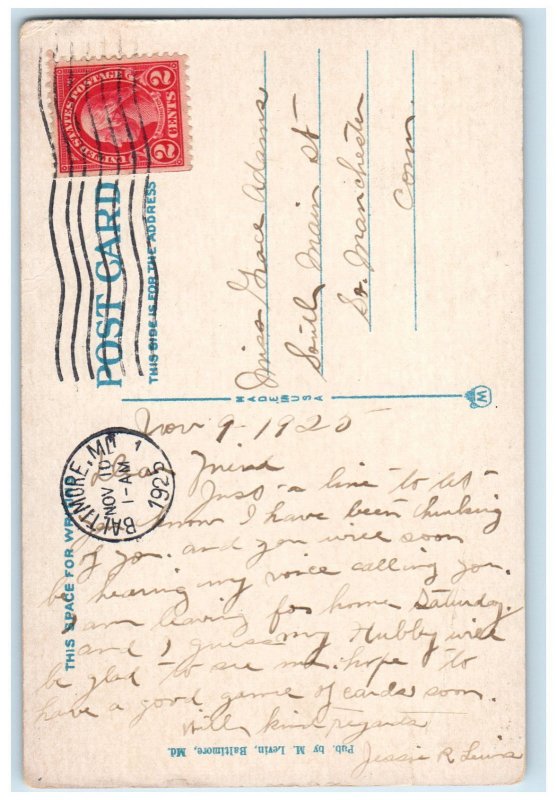 UNITED STATES POSTAGE
2 CENTS 2
POST CARD
THIS SIDE IS FOR THE ADDRESS
Miss Grace Adams
South Main St
So. Manchester
Conn.
MADE IN USA
W
BALTIMORE, MD.
1
NOV 10
1-AM
1925
THIS SPACE FOR WR
Nov 9-1925
Dear Friend
Just a line to let
you know I have been thinking
of you. and you will soon
be hearing my voice calling you.
I am leaving for home Saturday.
and I guess my Hubby will
be glad to see me. hope to
have a good game of cards soon.
With kind regards
Jessie R Lewis
Pub. by M. Levin, Baltimore, Md.